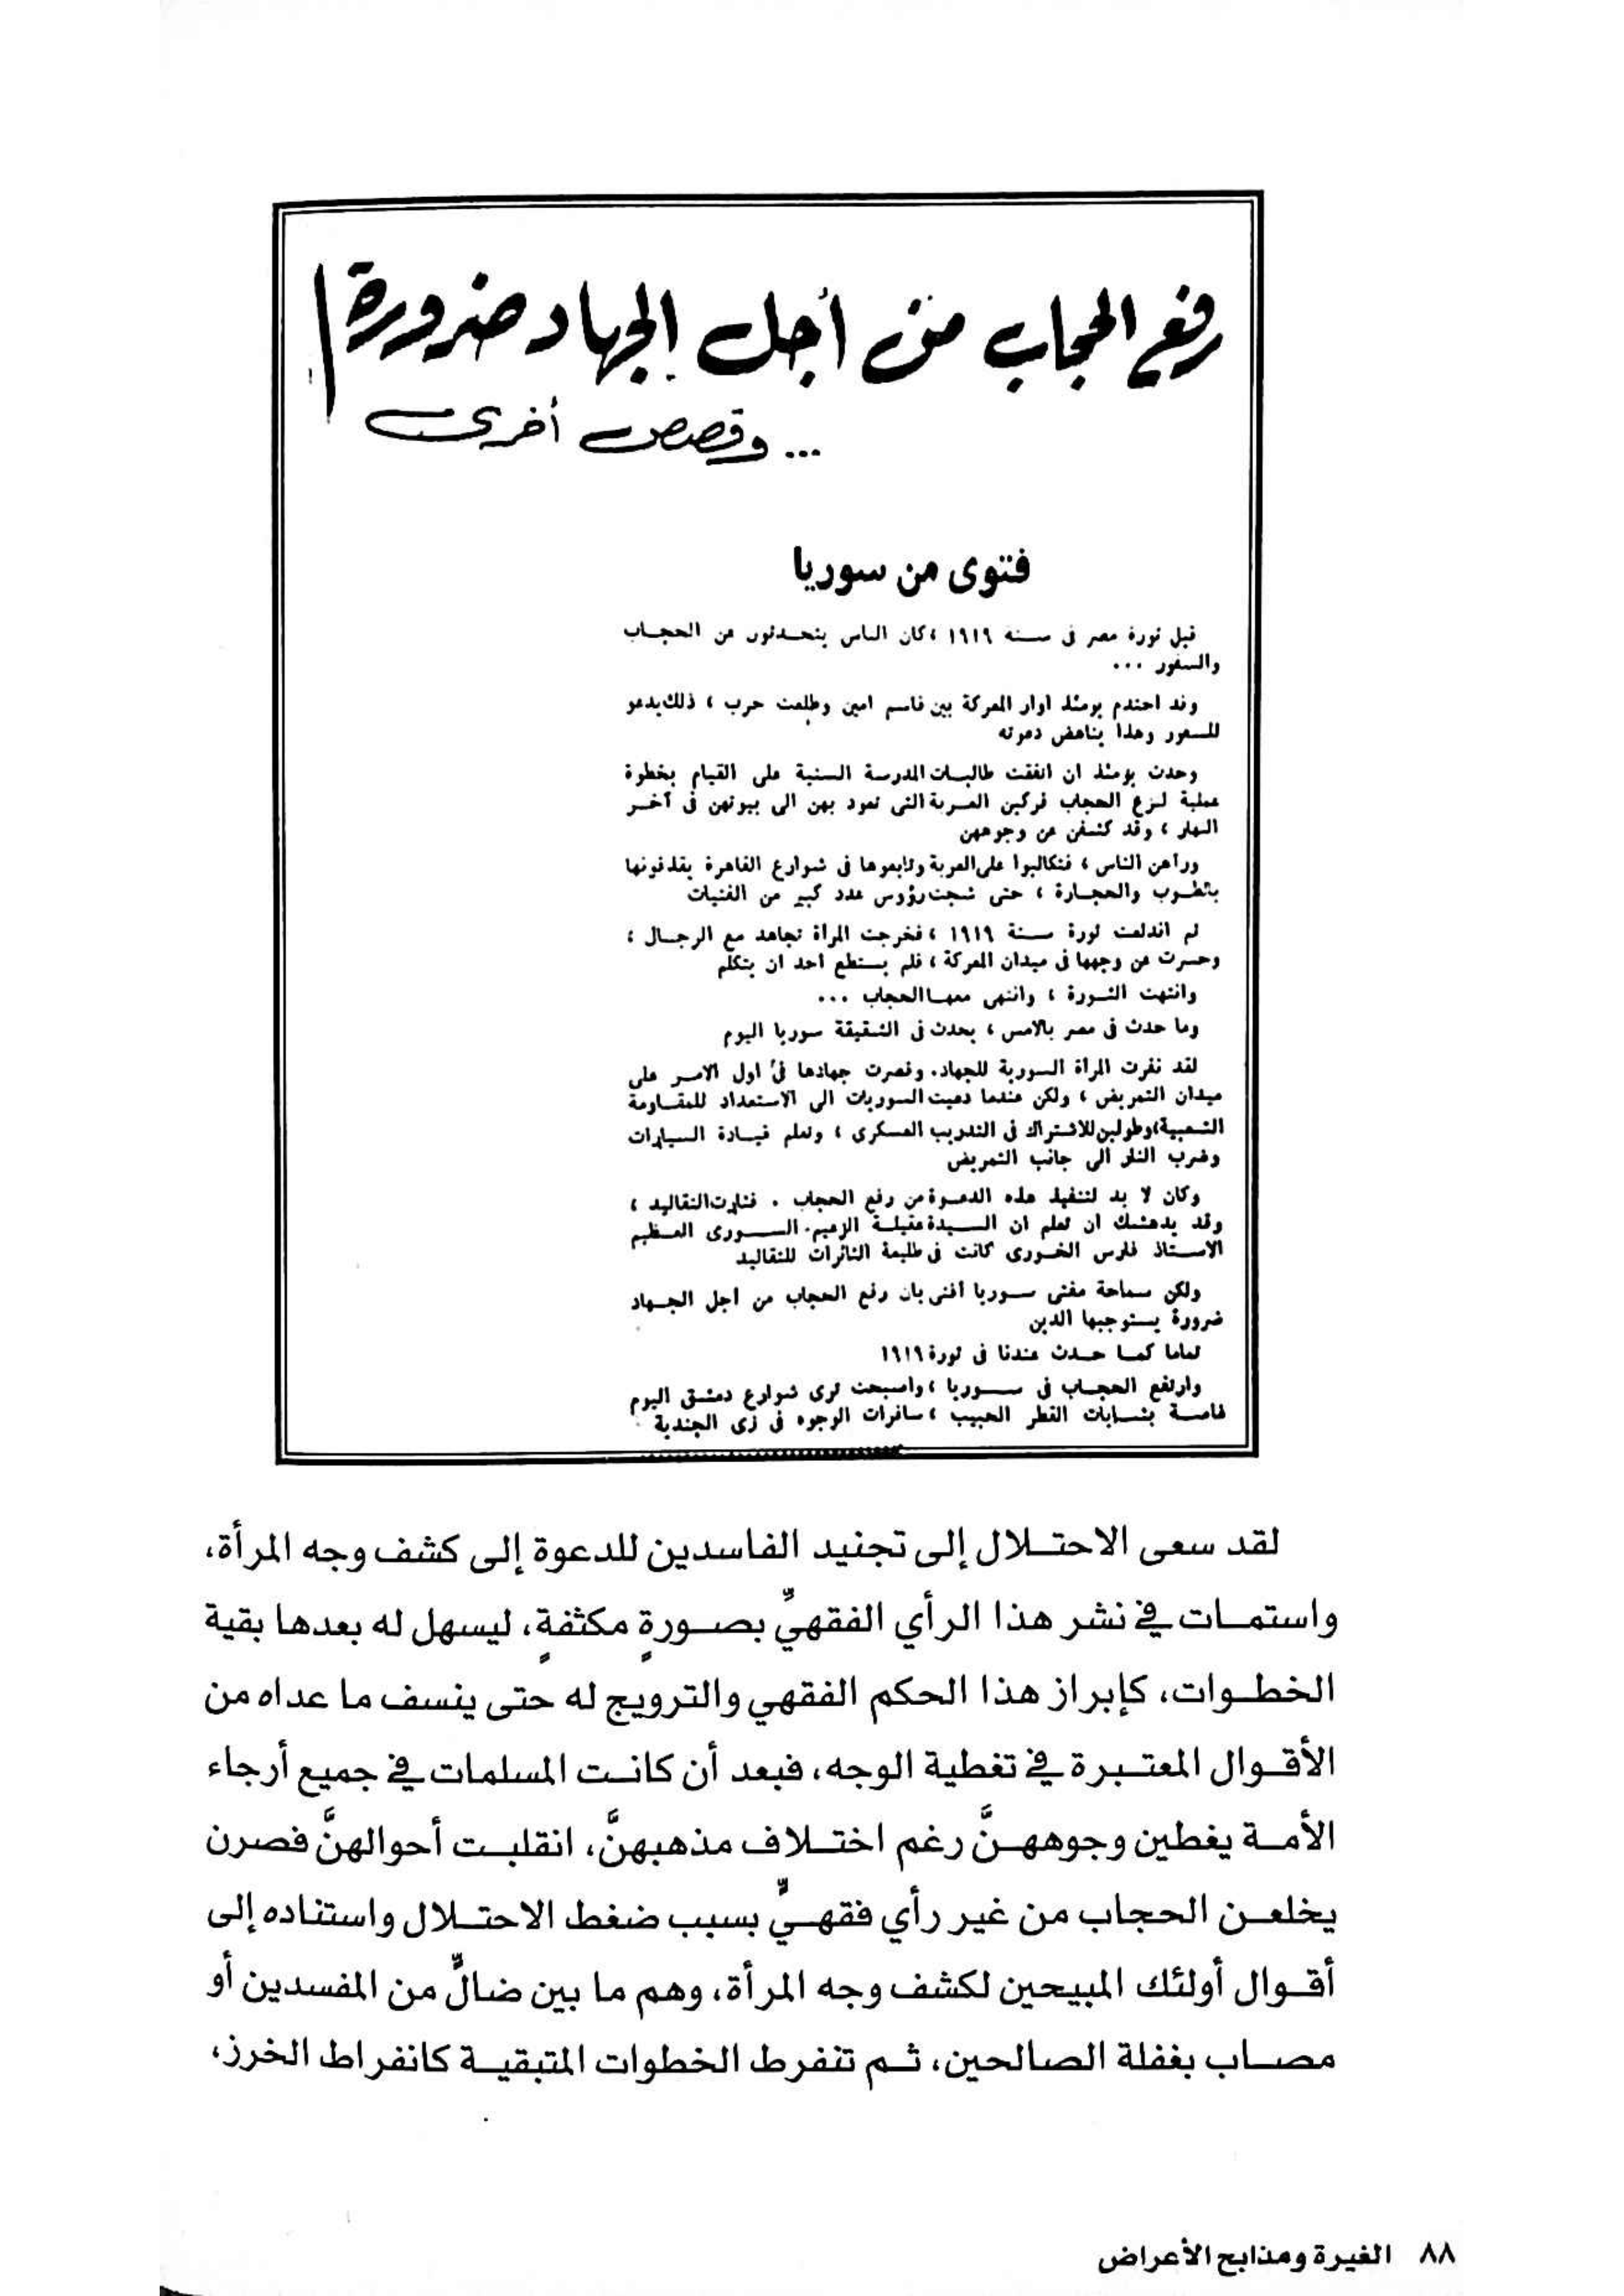 رفع الحجاب من أجل الجهاد ضرورة!
... وقصص أخرى
فتوى من سوريا
قبل ثورة مصر فى سنة ١٩١٩ ، كان الناس يتحدثون عن الحجاب
والسفور ...
وقد احتدم يومئذ اوار المعركة بين قاسم امين وطلعت حرب ، ذلك يدعو
للسفور وهذا يناهض دعوته
وحدث يومئذ ان اتفقت طالبات المدرسة السنية على القيام بخطوة
عملية لنزع الحجاب فركبن العربة التى تعود بهن الى بيوتهن فى آخر
النهار ، وقد كشفن عن وجوههن
ورآهن الناس ، فتكالبوا على العربة وتابعوها فى شوارع القاهرة يقذفونها
بالطوب والحجارة ، حتى شجت رؤوس عدد كبير من الفتيات
ثم اندلعت ثورة سنة ١٩١٩ ، فخرجت المرأة تجاهد مع الرجال ؛
وحسرت عن وجهها فى ميدان المعركة ، فلم يستطع احد ان يتكلم
وانتهت الثورة ، وانتهى معها الحجاب ...
وما حدث فى مصر بالامس ، يحدث فى الشقيقة سوريا اليوم
لقد نفرت المرأة السورية للجهاد. وقصرت جهادها فى اول الامر على
ميدان التمريض ، ولكن عندما دعيت السوريات الى الاستعداد للمقاومة
الشعبية، وطولبن للاشتراك فى التدريب العسكرى ، وتعلم قيادة السيارات
وضرب النار الى جانب التمريض
وكان لا بد لتنفيذ هذه الدعوة من رفع الحجاب . فثارت التقاليد ،
وقد يدهشك ان تعلم ان السيدة عقيلة الزعيم السورى العظيم
الاستاذ فارس الخورى كانت فى طليعة الثائرات للتقاليد
ولكن سماحة مفتى سوريا أفتى بان رفع الحجاب من اجل الجهاد
ضرورة يستوجبها الدين
تماما كما حدث عندنا فى ثورة ١٩١٩
وارتفع الحجاب فى سوريا ، واصبحت ترى شوارع دمشق اليوم
غاصة بشابات القطر الحبيب ، سافرات الوجوه فى زى الجندية
لقد سعى الاحتلال إلى تجنيد الفاسدين للدعوة إلى كشف وجه المرأة،
واستمات في نشر هذا الرأي الفقهيِّ بصورةٍ مكثفةٍ، ليسهل له بعدها بقية
الخطوات، كإبراز هذا الحكم الفقهي والترويج له حتى ينسف ما عداه من
الأقوال المعتبرة في تغطية الوجه، فبعد أن كانت المسلمات في جميع أرجاء
الأمة يغطين وجوههنَّ رغم اختلاف مذهبهنَّ، انقلبت أحوالهنَّ فصرن
يخلعن الحجاب من غير رأي فقهيٍّ بسبب ضغط الاحتلال واستناده إلى
أقوال أولئك المبيحين لكشف وجه المرأة، وهم ما بين ضالٍّ من المفسدين أو
مصاب بغفلة الصالحين، ثم تنفرط الخطوات المتبقية كانفراط الخرز،
٨٨ الغيرة ومذابح الأعراض